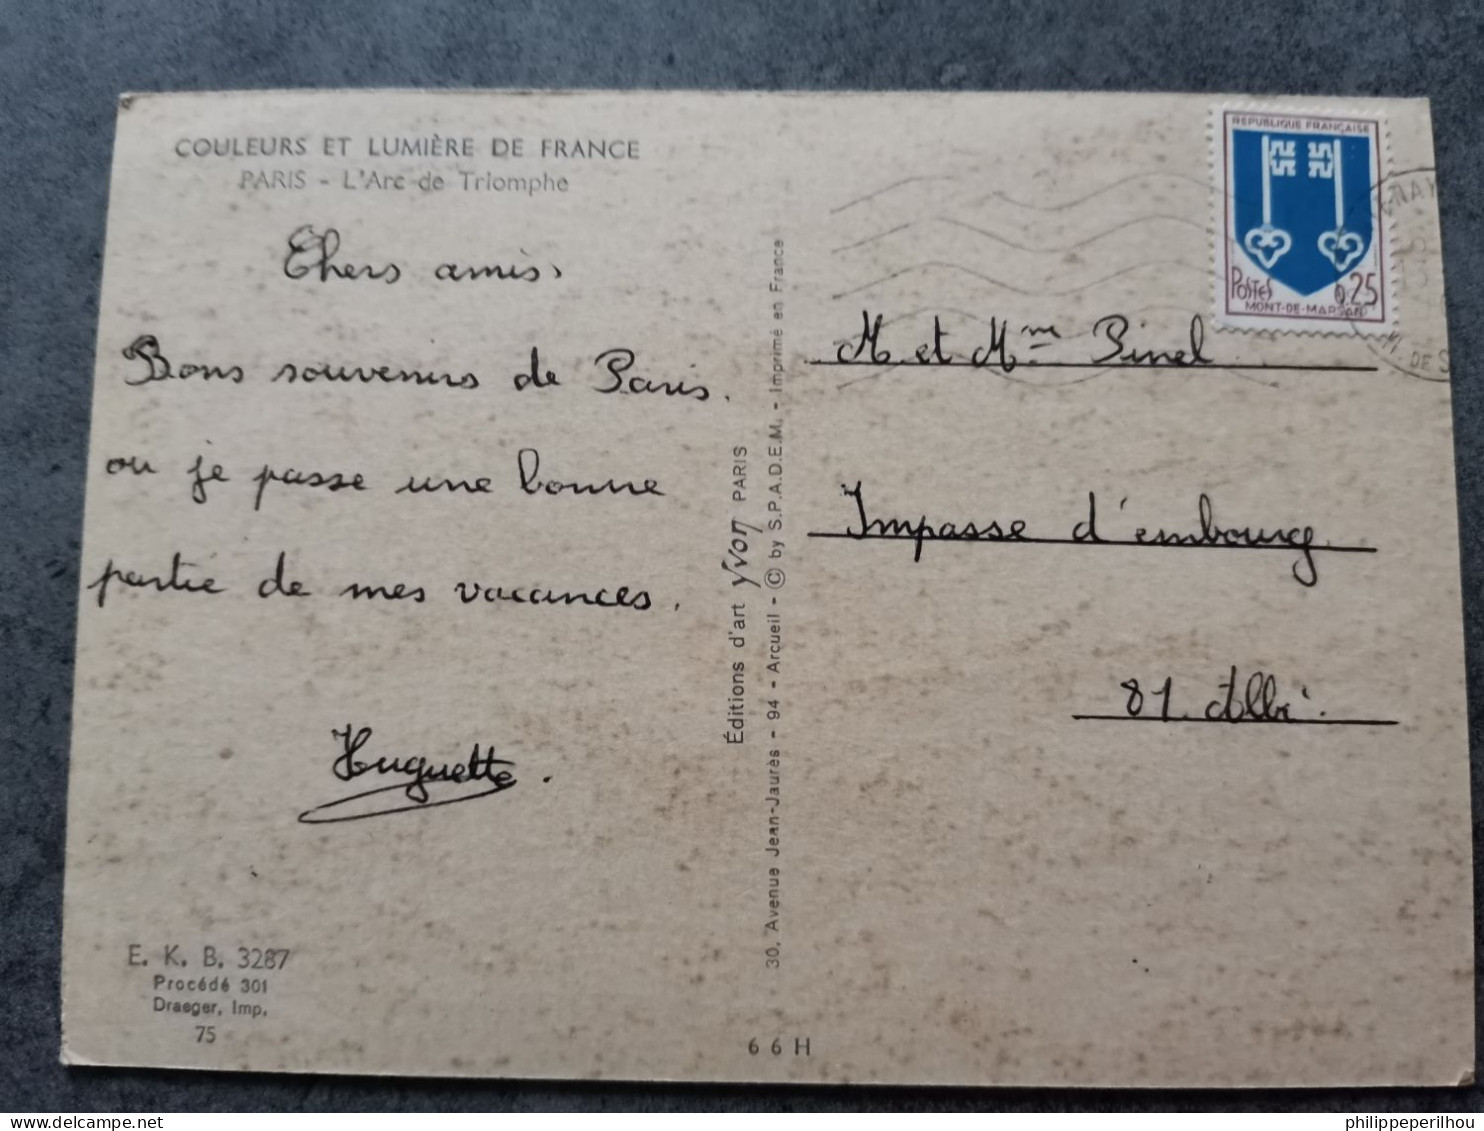 COULEURS ET LUMIÈRE DE FRANCE
PARIS - L'Arc de Triomphe
Chers amis,
Bons souvenirs de Paris.
ou je passe une bonne
partie de mes vacances.
Huguette.
E. K. B. 3287
Procédé 301
Draeger, Imp.
75
Éditions d'art yvon PARIS
30, Avenue Jean-Jaurès - 94 - Arcueil - © by S.P.A.D.E.M. - Imprimé en France
66H
REPUBLIQUE FRANÇAISE
POSTES 0,25
MONT-DE-MARSAN
DE S
M et Mme Pinel
Impasse d'embourg
81. Albi.
delcampe.net
philippeperilhou